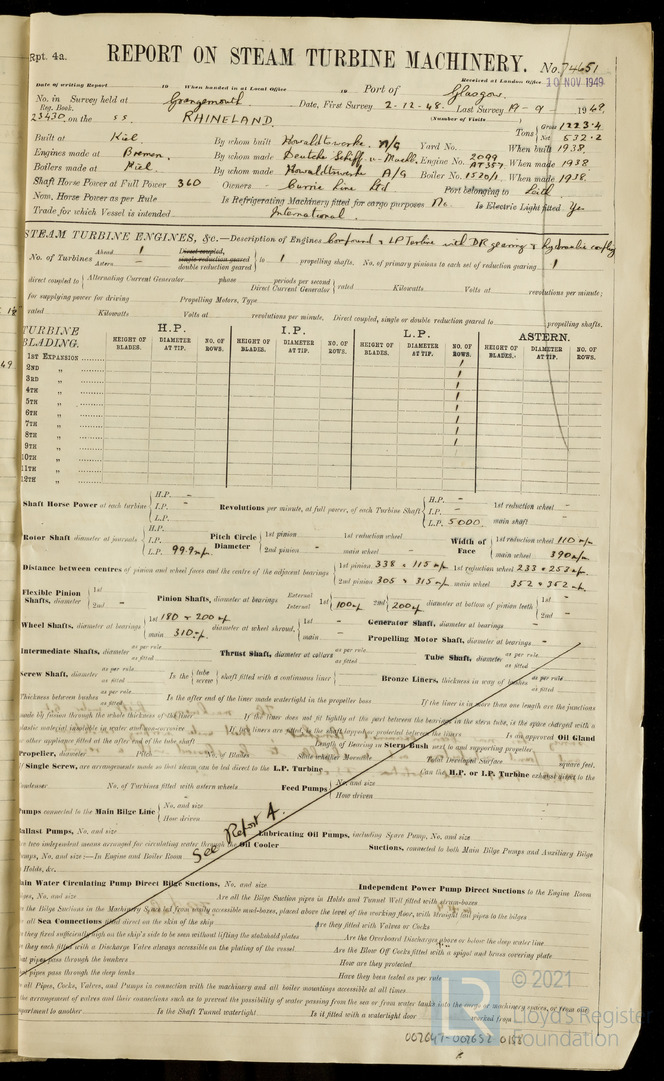 Rpt. 4a.
REPORT ON STEAM TURBINE MACHINERY. No. 74651
Received at London Office 10 NOV 1949
Date of writing Report 19 When handed in at Local Office 19 Port of Glasgow
No. in Survey held at Grangemouth Date, First Survey 2-12-48. Last Survey 19-9 1949
Reg. Book. (Number of Visits )
23430, on the s.s. RHINELAND. Tons { Gross 1223.4 Net 632.2
Built at Kiel By whom built Howaldtswerke. A/G Yard No. When built 1938.
Engines made at Bremen. By whom made Deutsche Schiff. u. Masch. Engine No. 2099 AT357 When made 1938
Boilers made at Kiel. By whom made Howaldtswerke A/G Boiler No. 1520/1. When made 1938.
Shaft Horse Power at Full Power 360 Owners Currie Line Ltd Port belonging to Leith
Nom. Horse Power as per Rule Is Refrigerating Machinery fitted for cargo purposes No Is Electric Light fitted Yes
Trade for which Vessel is intended International.
STEAM TURBINE ENGINES, &c.—Description of Engines Compound & LP Turbine with DR gearing & hydraulic coupling
No. of Turbines Ahead 1 Astern — Direct coupled, single reduction geared double reduction geared } to 1 propelling shafts. No. of primary pinions to each set of reduction gearing 1
direct coupled to { Alternating Current Generator phase periods per second Direct Current Generator } rated Kilowatts Volts at revolutions per minute;
for supplying power for driving Propelling Motors, Type
rated Kilowatts Volts at revolutions per minute. Direct coupled, single or double reduction geared to propelling shafts.
TURBINE BLADING. H.P. I.P. L.P. ASTERN.
HEIGHT OF BLADES. DIAMETER AT TIP. NO. OF ROWS. HEIGHT OF BLADES. DIAMETER AT TIP. NO. OF ROWS. HEIGHT OF BLADES. DIAMETER AT TIP. NO. OF ROWS. HEIGHT OF BLADES. DIAMETER AT TIP. NO. OF ROWS.
1st EXPANSION
2ND „ 1
3RD „ 1
4TH „ 1
5TH „ 1
6TH „ 1
7TH „ 1
8TH „ 1
9TH „ 1
10TH „
11TH „
12TH „
Shaft Horse Power at each turbine { H.P. - I.P. - L.P. Revolutions per minute, at full power, of each Turbine Shaft { H.P. - I.P. - L.P. 5000 1st reduction wheel - main shaft
Rotor Shaft diameter at journals { H.P. I.P. L.P. 99.9 m/m Pitch Circle Diameter { 1st pinion 2nd pinion - 1st reduction wheel main wheel - Width of Face { 1st reduction wheel 110 m/m main wheel 390 m/m
Distance between centres of pinion and wheel faces and the centre of the adjacent bearings { 1st pinion 338 & 115 m/m 2nd pinion 305 & 315 m/m 1st reduction wheel 233 & 253 m/m main wheel 352 & 352 m/m
Flexible Pinion Shafts, diameter { 1st 2nd - Pinion Shafts, diameter at bearings External Internal 1st 100 m/m 2nd 200 m/m diameter at bottom of pinion teeth { 1st - 2nd -
Wheel Shafts, diameter at bearings { 1st 180 & 200 m/m main 310 m/m diameter at wheel shroud, { 1st - main - Generator Shaft, diameter at bearings -
Propelling Motor Shaft, diameter at bearings -
Intermediate Shafts, diameter as per rule as fitted Thrust Shaft, diameter at collars as per rule as fitted Tube Shaft, diameter as per rule as fitted
Screw Shaft, diameter as per rule as fitted Is the { tube screw } shaft fitted with a continuous liner { Bronze Liners, thickness in way of bushes as per rule as fitted
Thickness between bushes as per rule as fitted Is the after end of the liner made watertight in the propeller boss If the liner is in more than one length are the junctions
made by fusion through the whole thickness of the liner If the liner does not fit tightly at the part between the bearings in the stern tube, is the space charged with a
plastic material insoluble in water and non-corrosive If two liners are fitted, is the shaft lapped or protected between the liners Is an approved Oil Gland
or other appliance fitted at the after end of the tube shaft Length of Bearing in Stern Bush next to and supporting propeller
Propeller, diameter Pitch No. of Blades State whether Moveable Total Developed Surface square feet.
If Single Screw, are arrangements made so that steam can be led direct to the L.P. Turbine Can the H.P. or I.P. Turbine exhaust direct to the
Condenser No. of Turbines fitted with astern wheels Feed Pumps { No. and size How driven
Pumps connected to the Main Bilge Line { No. and size How driven
See Report 4.
Ballast Pumps, No. and size Lubricating Oil Pumps, including Spare Pump, No. and size
Are two independent means arranged for circulating water through the Oil Cooler Suctions, connected to both Main Bilge Pumps and Auxiliary Bilge
Pumps, No. and size:—In Engine and Boiler Room
Holds, &c.
Main Water Circulating Pump Direct Bilge Suctions, No. and size Independent Power Pump Direct Suctions to the Engine Room
Bilges, No. and size Are all the Bilge Suction pipes in Holds and Tunnel Well fitted with strum-boxes
Are the Bilge Suctions in the Machinery Space led from easily accessible mud-boxes, placed above the level of the working floor, with straight tail pipes to the bilges
Are all Sea Connections fitted direct on the skin of the ship Are they fitted with Valves or Cocks
Are they fixed sufficiently high on the ship's side to be seen without lifting the stokehold plates Are the Overboard Discharges above or below the deep water line
Are they each fitted with a Discharge Valve always accessible on the plating of the vessel Are the Blow Off Cocks fitted with a spigot and brass covering plate
What pipes pass through the bunkers How are they protected
What pipes pass through the deep tanks Have they been tested as per rule
Are all Pipes, Cocks, Valves, and Pumps in connection with the machinery and all boiler mountings accessible at all times
Is the arrangement of valves and their connections such as to prevent the possibility of water passing from the sea or from water tanks into the cargo or machinery spaces, or from one
compartment to another Is the Shaft Tunnel watertight Is it fitted with a watertight door worked from
© 2021
Lloyd's Register
Foundation
LR
007647-007657 0188